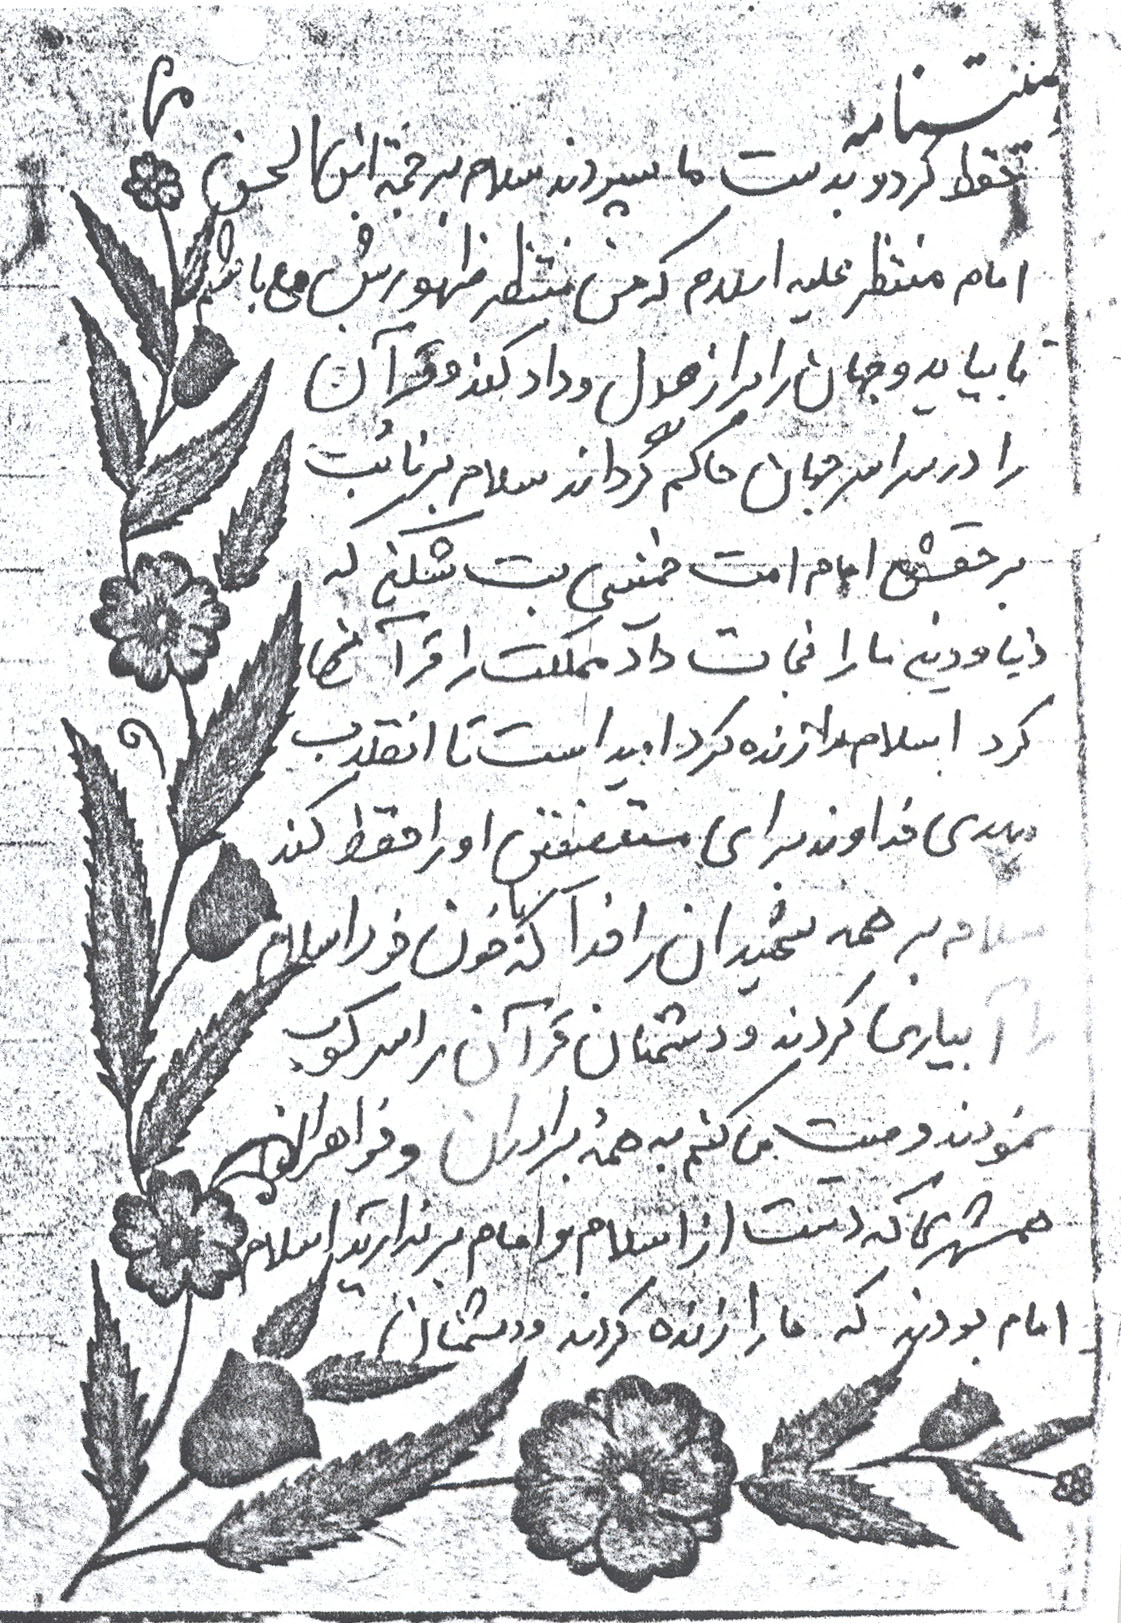 حفظ کردو بدست ما سپردند سلام بر حجة ابن الحسن
امام منتظر علیه اسلام که من منتظر ظهورش می باشم
تا بیاید و جهان را پر از عدل و داد کند و قرآن
را در سراسر جهان حاکم گرداند سلام بر نائب
بر حقش امام امت خمینی بت شکنی که
دنیا و دین ما را نجات داد مملکت را قرآنی
کرد اسلام را زنده کرد امید است تا انقلاب
مهدی خداوند برای مستضعفین او را حفظ کند
سلام بر همه شهیدان راه خدا که با خون خود اسلام
را آبیاری کردند و دشمنان قرآن را سرکوب
نمودند وصیت می کنم به همۀ برادران و خواهران
همشهری که دست از اسلام و امام برندارید اسلام
امام بودند که ما را زنده کردند و دشمنان